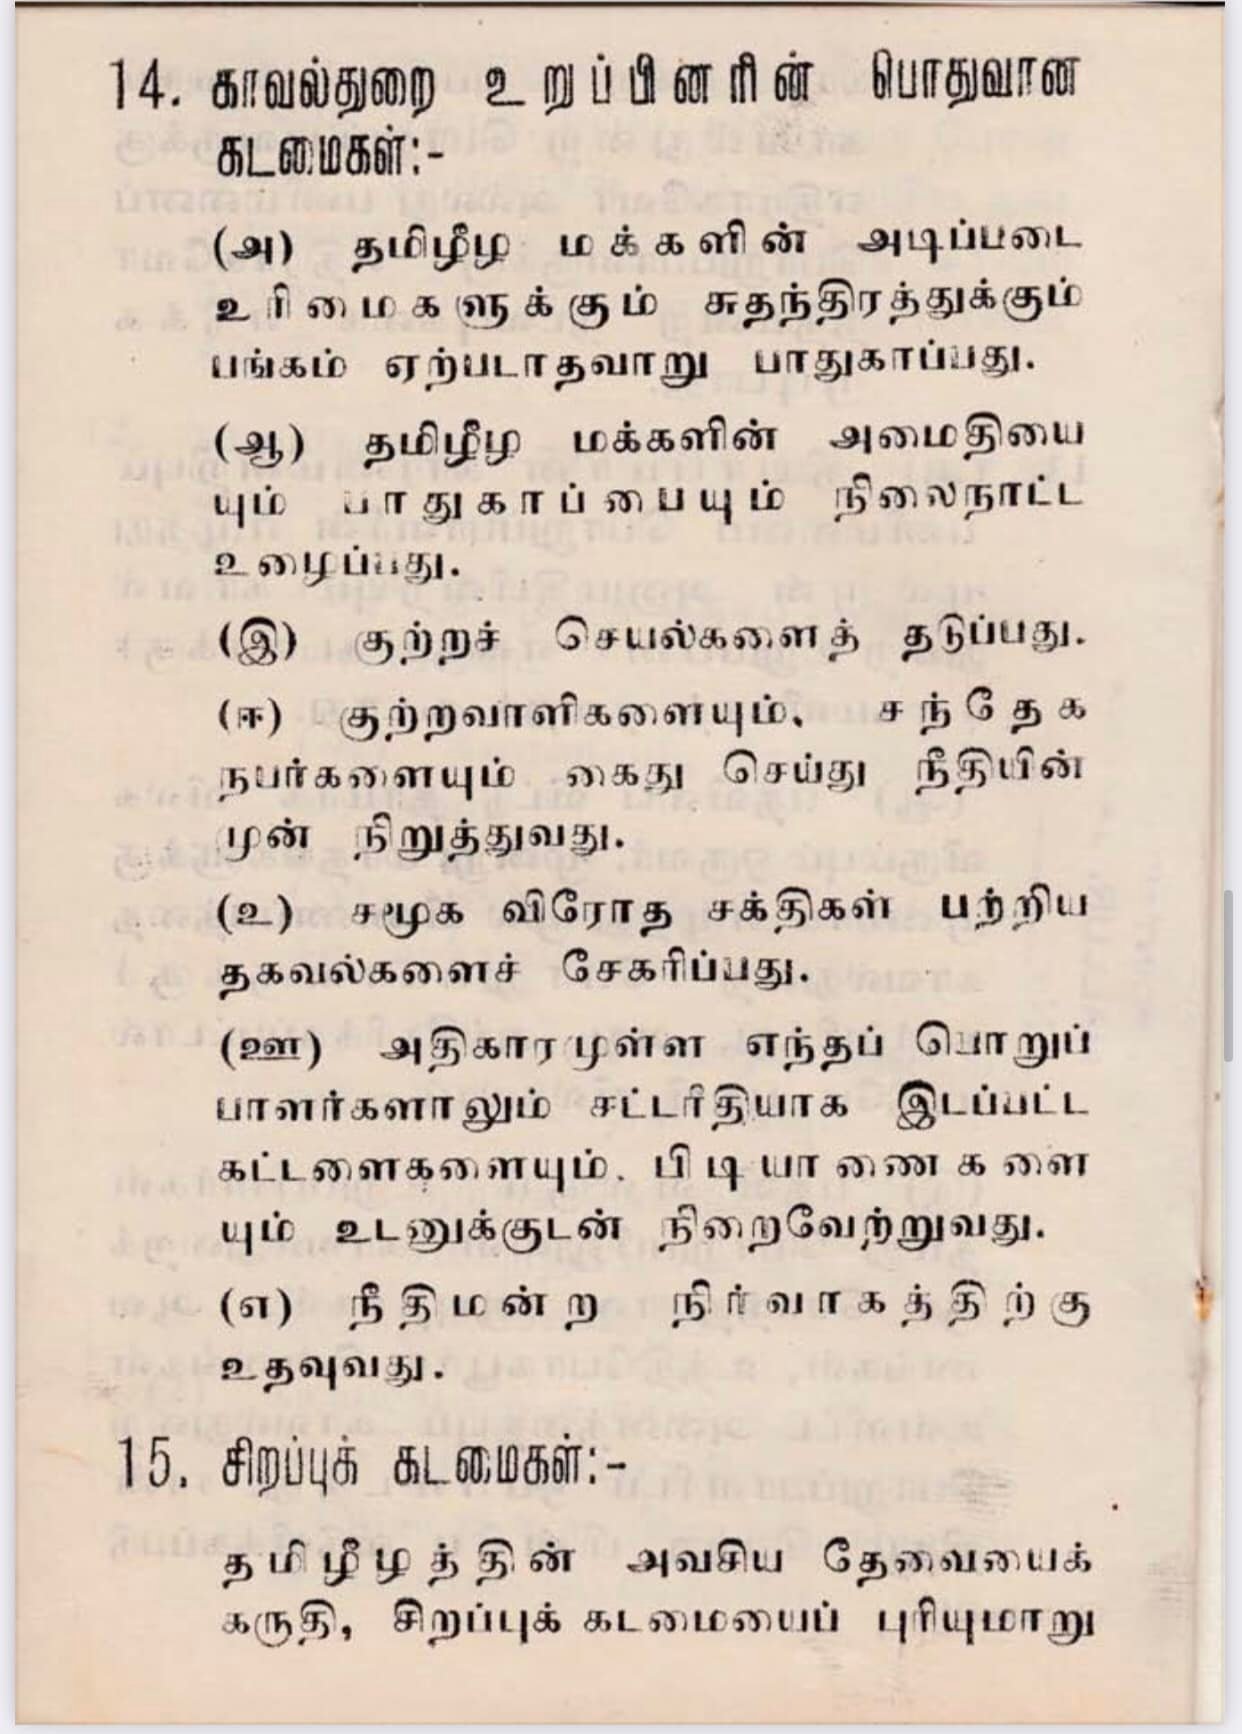 14. காவல்துறை உறுப்பினரின் பொதுவான
கடமைகள்:-
(அ) தமிழீழ மக்களின் அடிப்படை
உரிமைகளுக்கும் சுதந்திரத்துக்கும்
பங்கம் ஏற்படாதவாறு பாதுகாப்பது.
(ஆ) தமிழீழ மக்களின் அமைதியை
யும் பாதுகாப்பையும் நிலைநாட்ட
உழைப்பது.
(இ) குற்றச் செயல்களைத் தடுப்பது.
(ஈ) குற்றவாளிகளையும், சந்தேக
நபர்களையும் கைது செய்து நீதியின்
முன் நிறுத்துவது.
(உ) சமூக விரோத சக்திகள் பற்றிய
தகவல்களைச் சேகரிப்பது.
(ஊ) அதிகாரமுள்ள எந்தப் பொறுப்
பாளர்களாலும் சட்டரீதியாக இடப்பட்ட
கட்டளைகளையும், பிடியாணைகளை
யும் உடனுக்குடன் நிறைவேற்றுவது.
(எ) நீதிமன்ற நிர்வாகத்திற்கு
உதவுவது.
15. சிறப்புக் கடமைகள்:-
தமிழீழத்தின் அவசிய தேவையைக்
கருதி, சிறப்புக் கடமையைப் புரியுமாறு